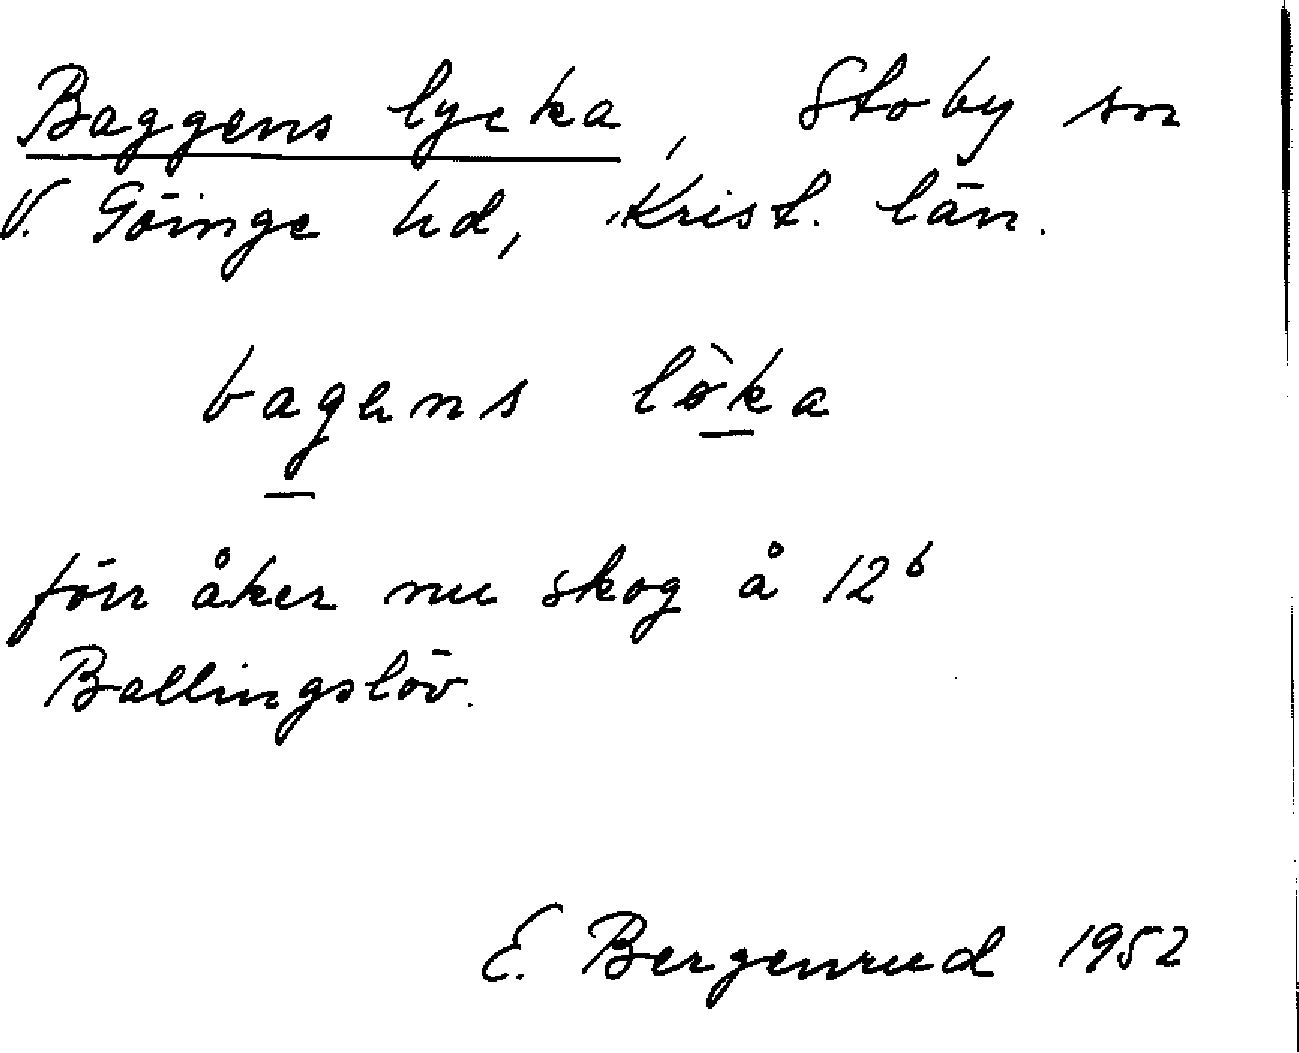 Baggens lycka, Stoby sn
V. Göinge hd, Krist. län.
bagens lö̀ka
förr åker nu skog å 12ᵇ
Ballingslöv.
E. Bergenrud 1952